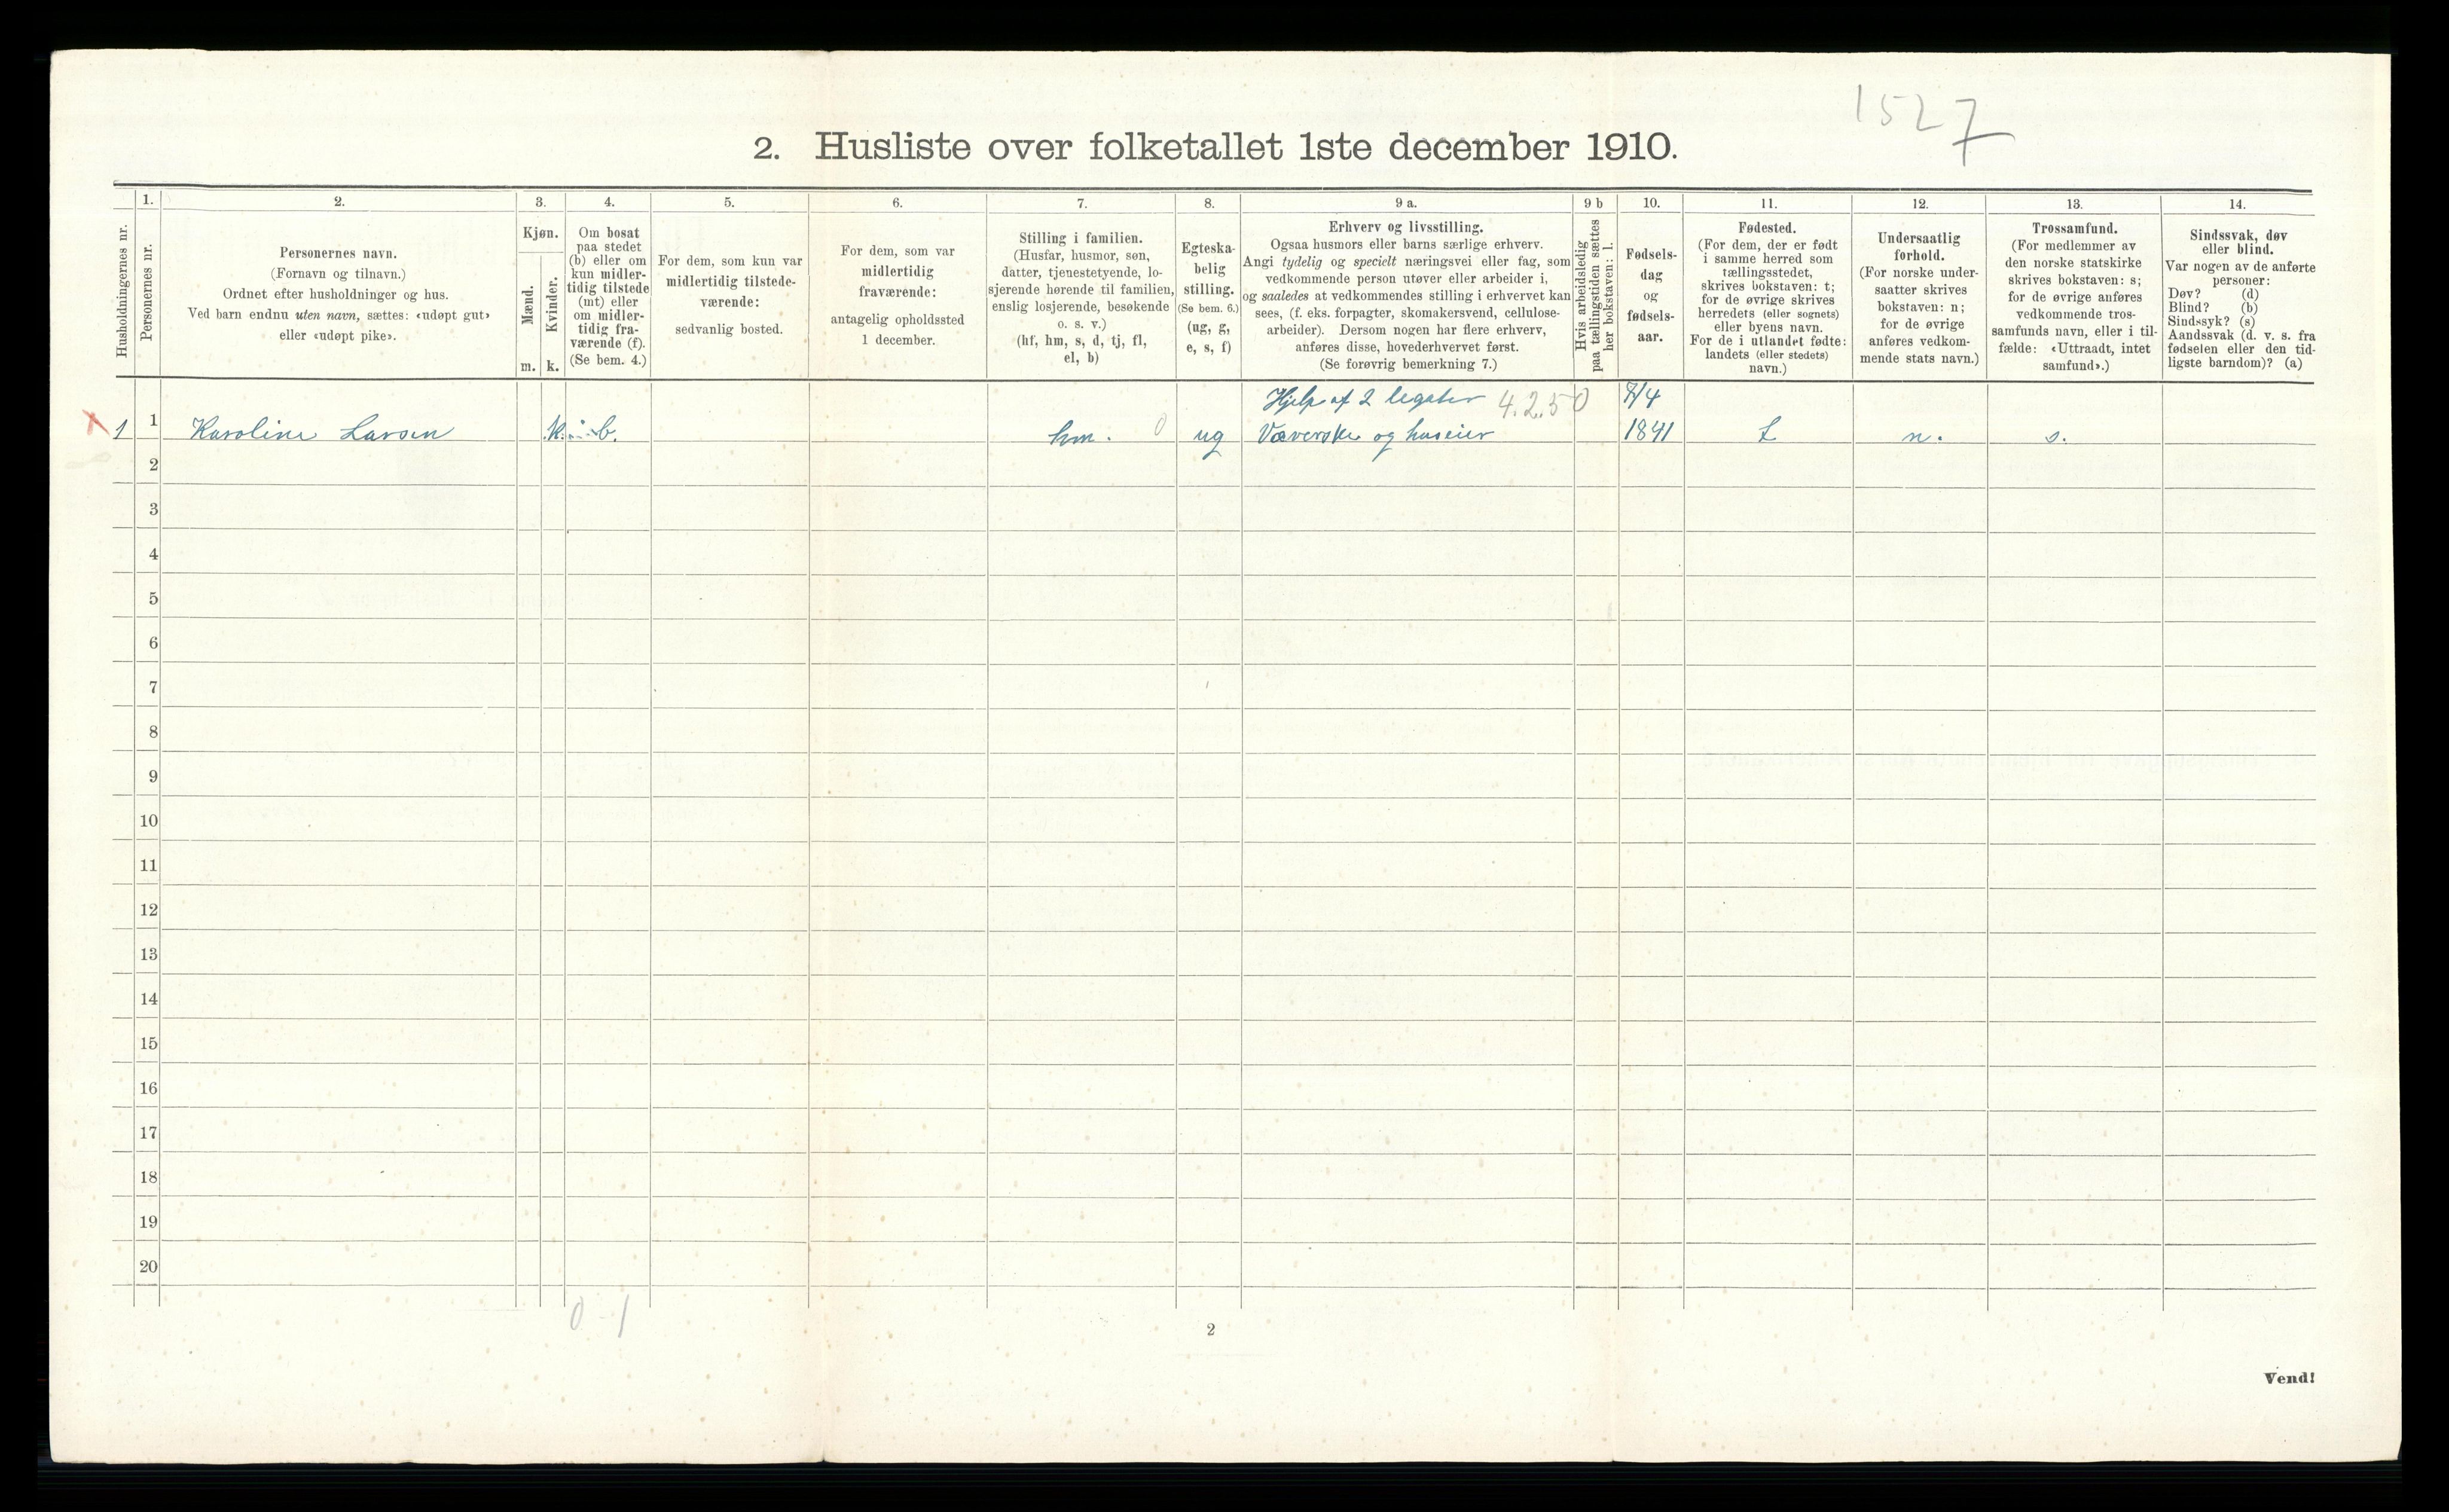 1527
2. Husliste over folketallet 1ste december 1910.
Husholdningernes nr.
1.
Personernes nr.
2.
Personernes navn.
(Fornavn og tilnavn.)
Ordnet efter husholdninger og hus.
Ved barn endnu uten navn, sættes: «udøpt gut»
eller «udøpt pike».
3.
Kjøn.
Mænd.
Kvinder.
m. k.
4.
Om bosat
paa stedet
(b) eller om
kun midler-
tidig tilstede
(mt) eller
om midler-
tidig fra-
værende (f).
(Se bem. 4.)
5.
For dem, som kun var
midlertidig tilstede-
værende:
sedvanlig bosted.
6.
For dem, som var
midlertidig
fraværende:
antagelig opholdssted
1 december.
7.
Stilling i familien.
(Husfar, husmor, søn,
datter, tjenestetyende, lo-
sjerende hørende til familien,
enslig losjerende, besøkende
o. s. v.)
(hf, hm, s, d, tj, fl,
el, b)
8.
Egteska-
belig
stilling.
(Se bem. 6.)
(ug, g,
e, s, f)
9 a.
Erhverv og livsstilling.
Ogsaa husmors eller barns særlige erhverv.
Angi tydelig og specielt næringsvei eller fag, som
vedkommende person utøver eller arbeider i,
og saaledes at vedkommendes stilling i erhvervet kan
sees, (f. eks. forpagter, skomakersvend, cellulose-
arbeider). Dersom nogen har flere erhverv,
anføres disse, hovederhvervet først.
(Se forøvrig bemerkning 7.)
9 b
Hvis arbeidsledig
paa tællingstiden sættes
her bokstaven: l.
10.
Fødsels-
dag
og
fødsels-
aar.
11.
Fødested.
(For dem, der er født
i samme herred som
tællingsstedet,
skrives bokstaven: t;
for de øvrige skrives
herredets (eller sognets)
eller byens navn.
For de i utlandet fødte:
landets (eller stedets)
navn.)
12.
Undersaatlig
forhold.
(For norske under-
saatter skrives
bokstaven: n;
for de øvrige
anføres vedkom-
mende stats navn.)
13.
Trossamfund.
(For medlemmer av
den norske statskirke
skrives bokstaven: s;
for de øvrige anføres
vedkommende tros-
samfunds navn, eller i til-
fælde: «Uttraadt, intet
samfund».)
14.
Sindssvak, døv
eller blind.
Var nogen av de anførte
personer:
Døv? (d)
Blind? (b)
Sindssyk? (s)
Aandssvak (d. v. s. fra
fødselen eller den tid-
ligste barndom)? (a)
Hjelp af 2 legater 4.2.50 7/4
x 1 1 Karoline Larsen k. b. hm. 0 ug Væverske og huseier 1841 t n. s.
2
3
4
5
6
7
8
9
10
11
12
13
14
15
16
17
18
19
20
0-1
2
Vend!